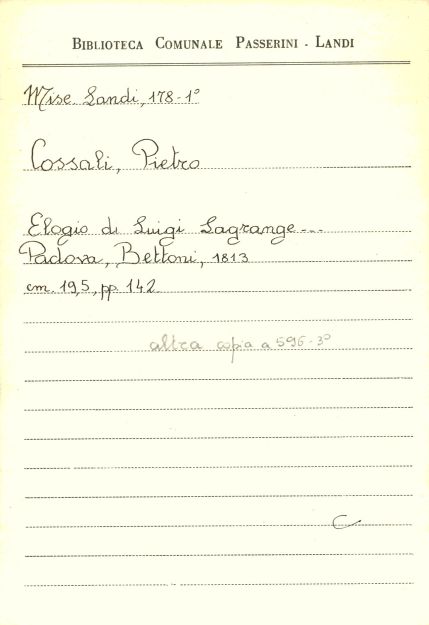 BIBLIOTECA COMUNALE PASSERINI - LANDI
Misc. Landi, 178-1°
Cossali, Pietro
Elogio di Luigi Lagrange...
Padova, Bettoni, 1813
cm. 19,5, pp. 142
altra copia a 596-3°
C